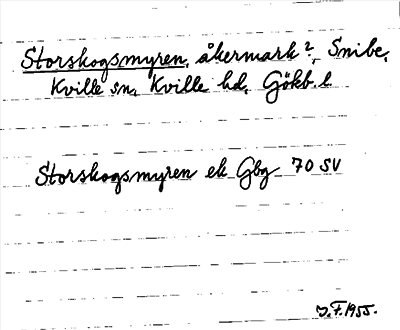 Storskogsmyren, åkermark?, Snibe,
Kville sn, Kville hd, Gökb. l
Storskogsmyren ek Gbg 70 SV
J.F. 1955.